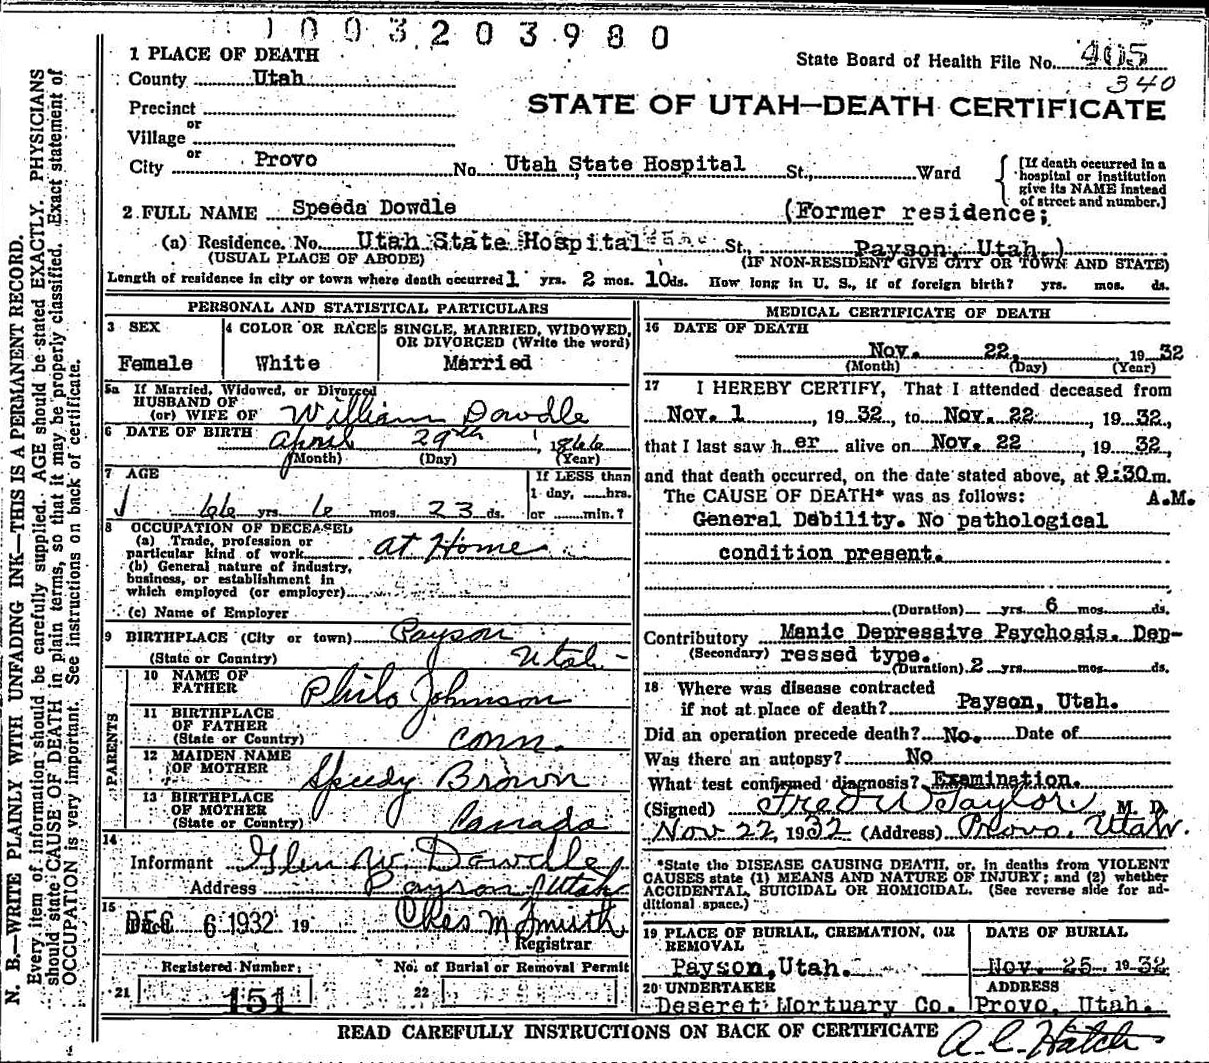 1003203980
1 PLACE OF DEATH
State Board of Health File No. 405
County Utah
340
Precinct
STATE OF UTAH—DEATH CERTIFICATE
or
Village
or
City Provo No. Utah State Hospital St., Ward
[If death occurred in a hospital or institution give its NAME instead of street and number.]
2 FULL NAME Speeda Dowdle (Former residence;
(a) Residence. No. Utah State Hospital St., Payson, Utah.)
(USUAL PLACE OF ABODE) (IF NON-RESIDENT GIVE CITY OR TOWN AND STATE)
Length of residence in city or town where death occurred 1 yrs. 2 mos. 10 ds. How long in U. S., if of foreign birth? yrs. mos. ds.
PERSONAL AND STATISTICAL PARTICULARS
3 SEX
Female
4 COLOR OR RACE
White
5 SINGLE, MARRIED, WIDOWED, OR DIVORCED (Write the word)
Married
5a If Married, Widowed, or Divorced
HUSBAND OF
(or) WIFE OF William Dowdle
6 DATE OF BIRTH April 29th, 1866
(Month) (Day) (Year)
7 AGE
66 yrs. 6 mos. 23 ds.
If LESS than
1 day, hrs.
or min.?
8 OCCUPATION OF DECEASED
(a) Trade, profession or
particular kind of work at Home
(b) General nature of industry,
business, or establishment in
which employed (or employer)
(c) Name of Employer
9 BIRTHPLACE (City or town) Payson
(State or Country) Utah
PARENTS
10 NAME OF
FATHER Philo Johnson
11 BIRTHPLACE
OF FATHER
(State or Country) Conn.
12 MAIDEN NAME
OF MOTHER Speedy Brown
13 BIRTHPLACE
OF MOTHER
(State or Country) Canada
14
Informant Glen W. Dowdle
Address Payson Utah
15
DEC 6 1932 19 Chas M Smith
Registrar
Registered Number:
No. of Burial or Removal Permit
21 151
22
MEDICAL CERTIFICATE OF DEATH
16 DATE OF DEATH
Nov. 22, 1932
(Month) (Day) (Year)
17 I HEREBY CERTIFY, That I attended deceased from
Nov. 1, 1932, to Nov. 22, 1932,
that I last saw her alive on Nov. 22, 1932,
and that death occurred, on the date stated above, at 9:30 m.
The CAUSE OF DEATH* was as follows: A.M.
General Debility. No pathological
condition present.
(Duration) yrs. 6 mos. ds.
Contributory Manic Depressive Psychosis. Dep-
(Secondary) ressed type.
(Duration) 2 yrs. mos. ds.
18 Where was disease contracted
if not at place of death? Payson, Utah.
Did an operation precede death? No. Date of
Was there an autopsy? No
What test confirmed diagnosis? Examination.
(Signed) Fred W Taylor, M. D.
Nov 22, 1932 (Address) Provo, Utah.
*State the DISEASE CAUSING DEATH, or, in deaths from VIOLENT
CAUSES state (1) MEANS AND NATURE OF INJURY; and (2) whether
ACCIDENTAL, SUICIDAL OR HOMICIDAL. (See reverse side for ad-
ditional space.)
19 PLACE OF BURIAL, CREMATION, OR
REMOVAL
Payson, Utah.
DATE OF BURIAL
Nov. 25 1932
20 UNDERTAKER
Deseret Mortuary Co.
ADDRESS
Provo, Utah.
READ CAREFULLY INSTRUCTIONS ON BACK OF CERTIFICATE
A. C. Hatch
N. B.—WRITE PLAINLY WITH UNFADING INK—THIS IS A PERMANENT RECORD.
Every item of information should be carefully supplied. AGE should be stated EXACTLY. PHYSICIANS
should state CAUSE OF DEATH in plain terms, so that it may be properly classified. Exact statement of
OCCUPATION is very important. See instructions on back of certificate.